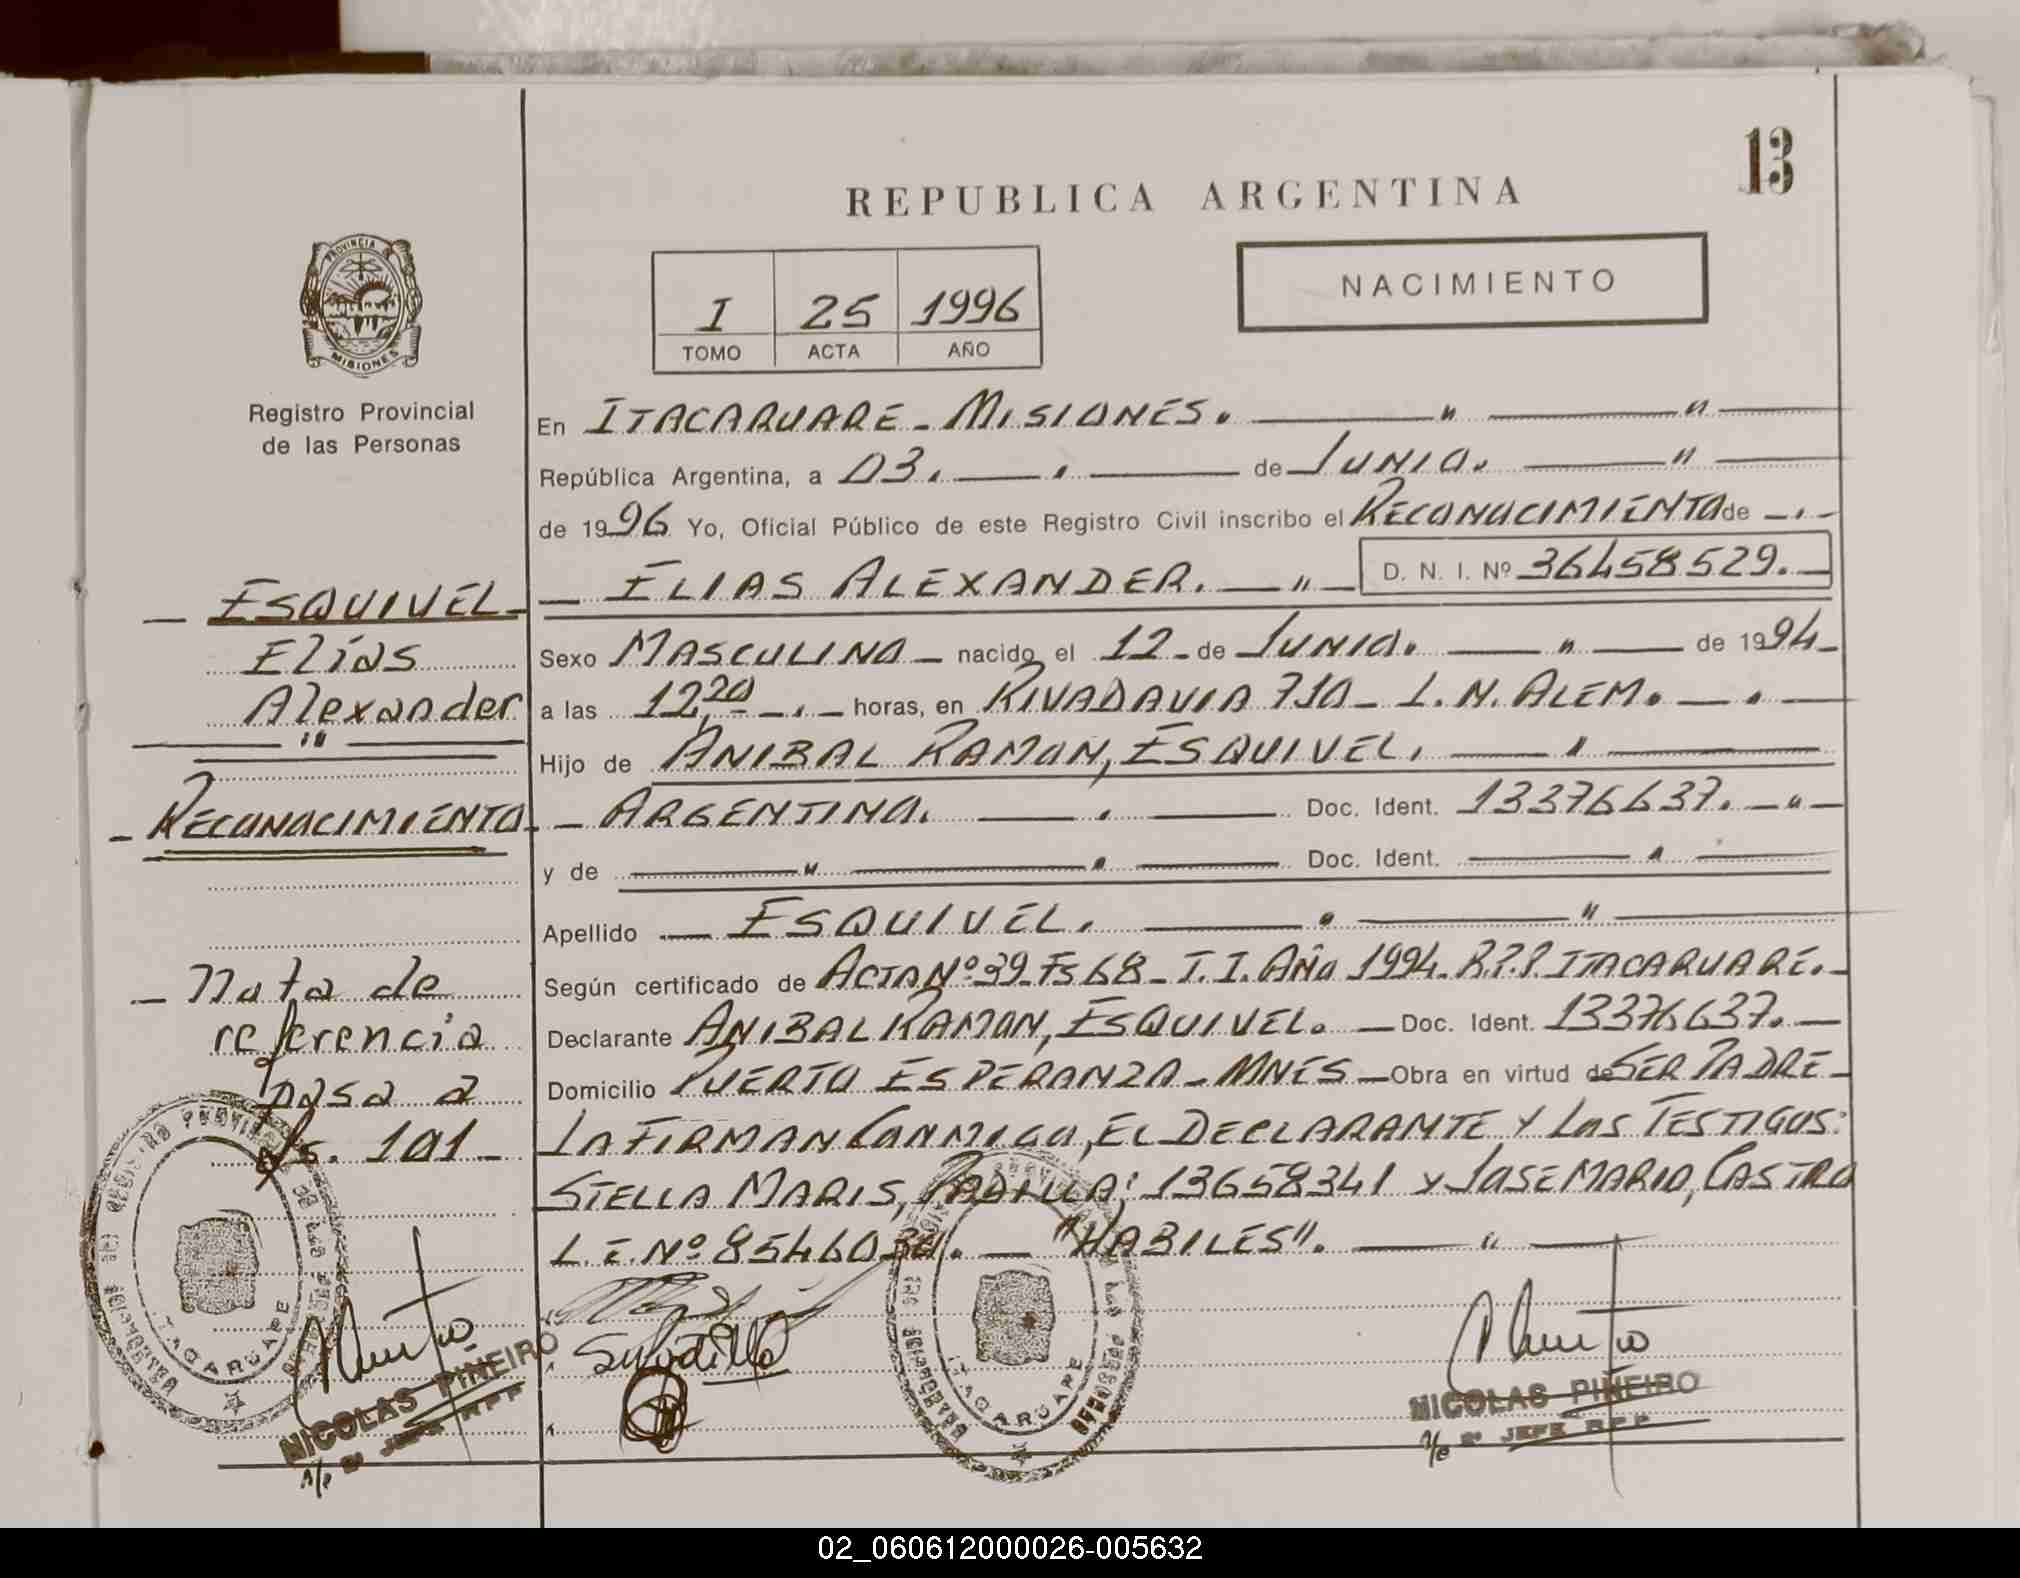 13
REPUBLICA ARGENTINA
PROVINCIA
MISIONES
I 25 1996
TOMO ACTA AÑO
NACIMIENTO
Registro Provincial
de las Personas
En ITACARUARE - MISIONES.
República Argentina, a 03. de JUNIO.
de 1996 Yo, Oficial Público de este Registro Civil inscribo el RECONOCIMIENTO de
ELIAS ALEXANDER. D. N. I. Nº 36458529.
Sexo MASCULINO nacido el 12 de JUNIO. de 1994
a las 12,20 horas, en RIVADAVIA 710 - L. N. ALEM.
Hijo de ANIBAL RAMON, ESQUIVEL.
ARGENTINO. Doc. Ident. 13376637.
y de Doc. Ident.
Apellido ESQUIVEL.
Según certificado de ACTA Nº 39 - Fs 68 - T. I. AÑO 1994 - R.P.P. ITACARUARE.
Declarante ANIBAL RAMON, ESQUIVEL. Doc. Ident. 13376637.
Domicilio PUERTO ESPERANZA - MNES Obra en virtud de SER PADRE
LA FIRMAN CONMIGO, EL DECLARANTE Y LOS TESTIGOS:
STELLA MARIS, PADILLA: 13658341 y JOSE MARIO, CASTRO
L.E. Nº "HABILES".
ESQUIVEL
Elías
Alexander
RECONOCIMIENTO
Nota de
referencia
pasa a
fs. 101
ITACARUARE
NICOLAS PIÑEIRO
2º JEFE R P P
ITACARUARE
NICOLAS PIÑEIRO
2º JEFE R P P
02_060612000026-005632